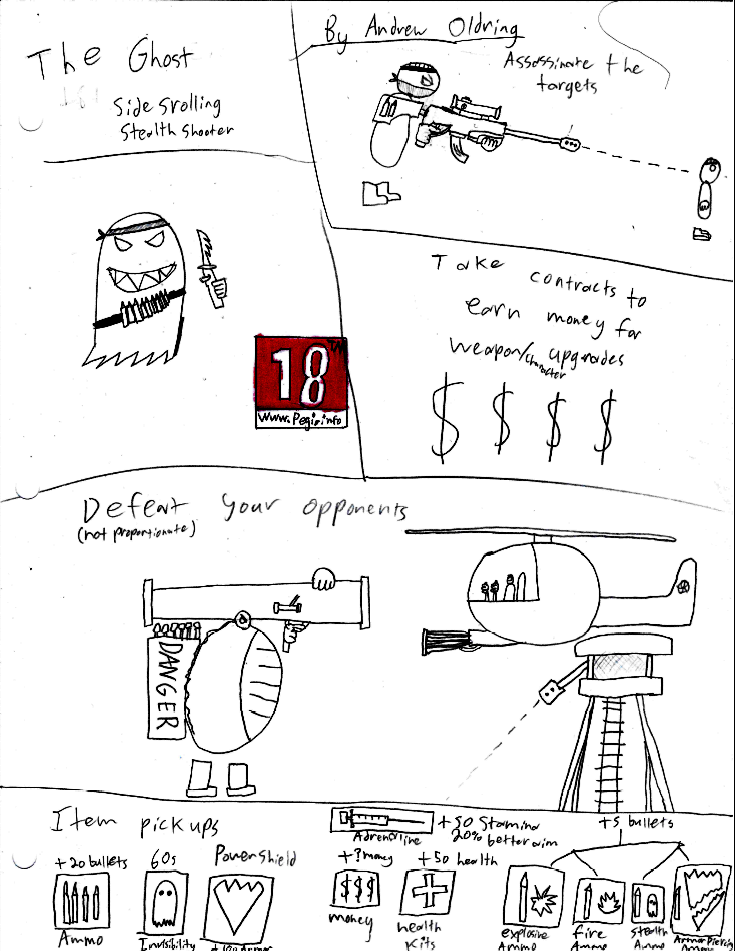 The Ghost
Side Srolling
Stealth Shooter
By Andrew Oldring
Assassinate the
targets
Take contracts to
earn money for
weapon/character upgrades
$ $ $ $
18
www.Pegi.info
Defeat your opponents
(not proportionate)
DANGER
Item pickups
+20 bullets
Ammo
60s
Invisibility
Powershield
Adrenaline
+50 Stamina
20% better aim
+?money
$$$
money
+50 health
health
kits
+5 bullets
explosive
Ammo
fire
Ammo
stealth
Ammo
Armor Piercing